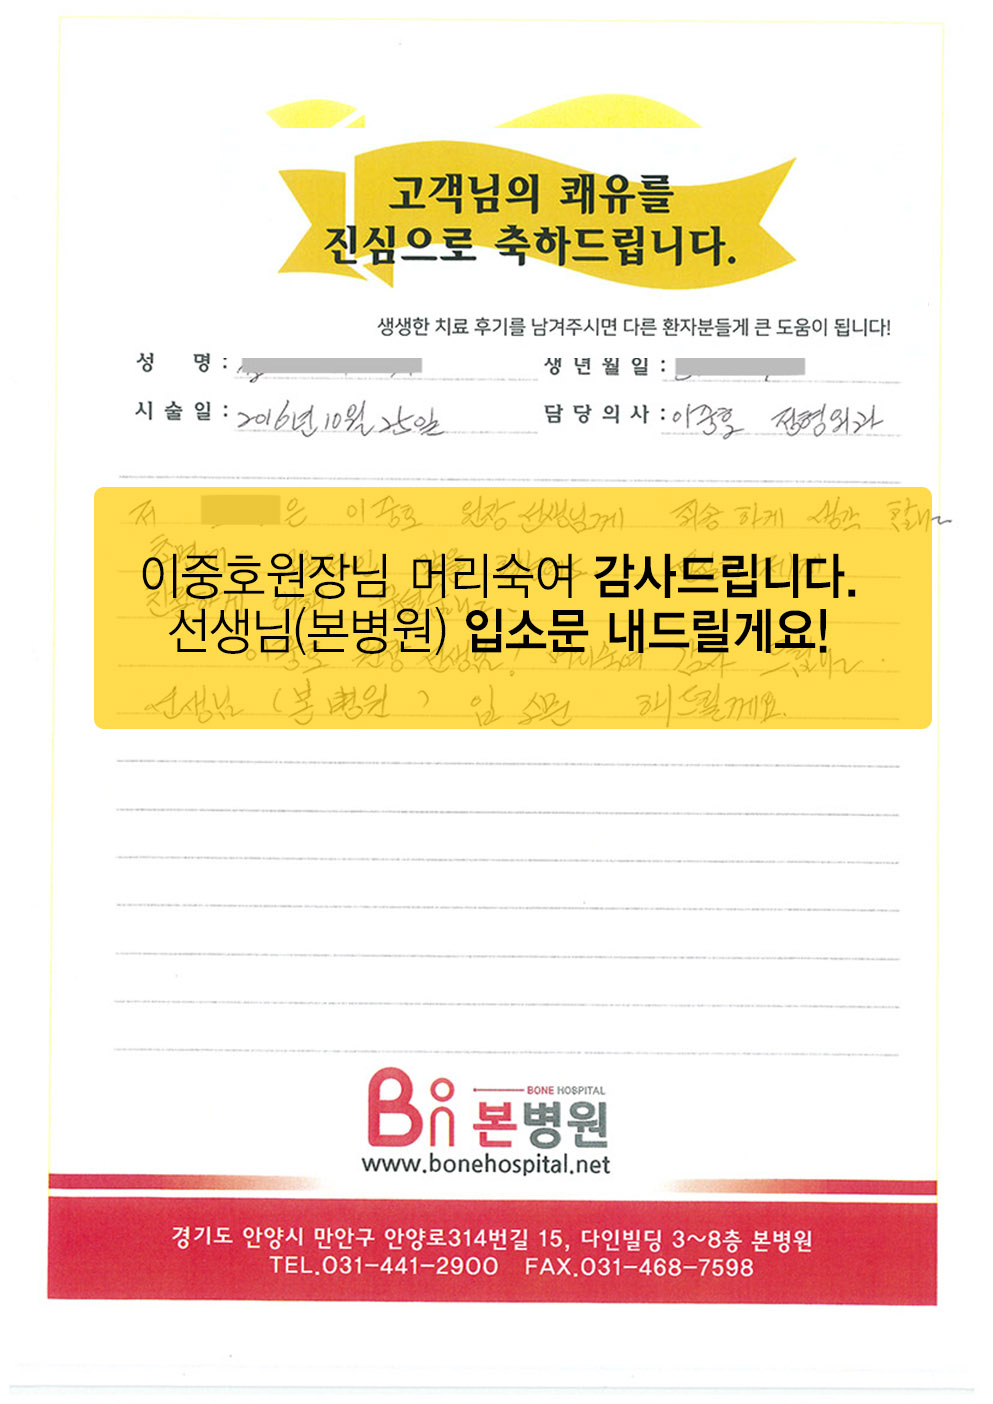 고객님의 쾌유를
진심으로 축하드립니다.
생생한 치료 후기를 남겨주시면 다른 환자분들게 큰 도움이 됩니다!
성 명 :
생년월일 :
시술일 : 2016년 10월 25일
담당의사 : 이중호 정형외과
저 은 이중호 원장 선생님께 죄송하게 생각 합니다
이중호원장님 머리숙여 감사드립니다.
선생님(본병원) 입소문 내드릴게요!
이중호 원장 선생님! 머리숙여 감사 드립니다.
선생님 (본 병원) 입 소문 해드릴께요.
BONE HOSPITAL
Bn 본병원
www.bonehospital.net
경기도 안양시 만안구 안양로314번길 15, 다인빌딩 3~8층 본병원
TEL.031-441-2900 FAX.031-468-7598